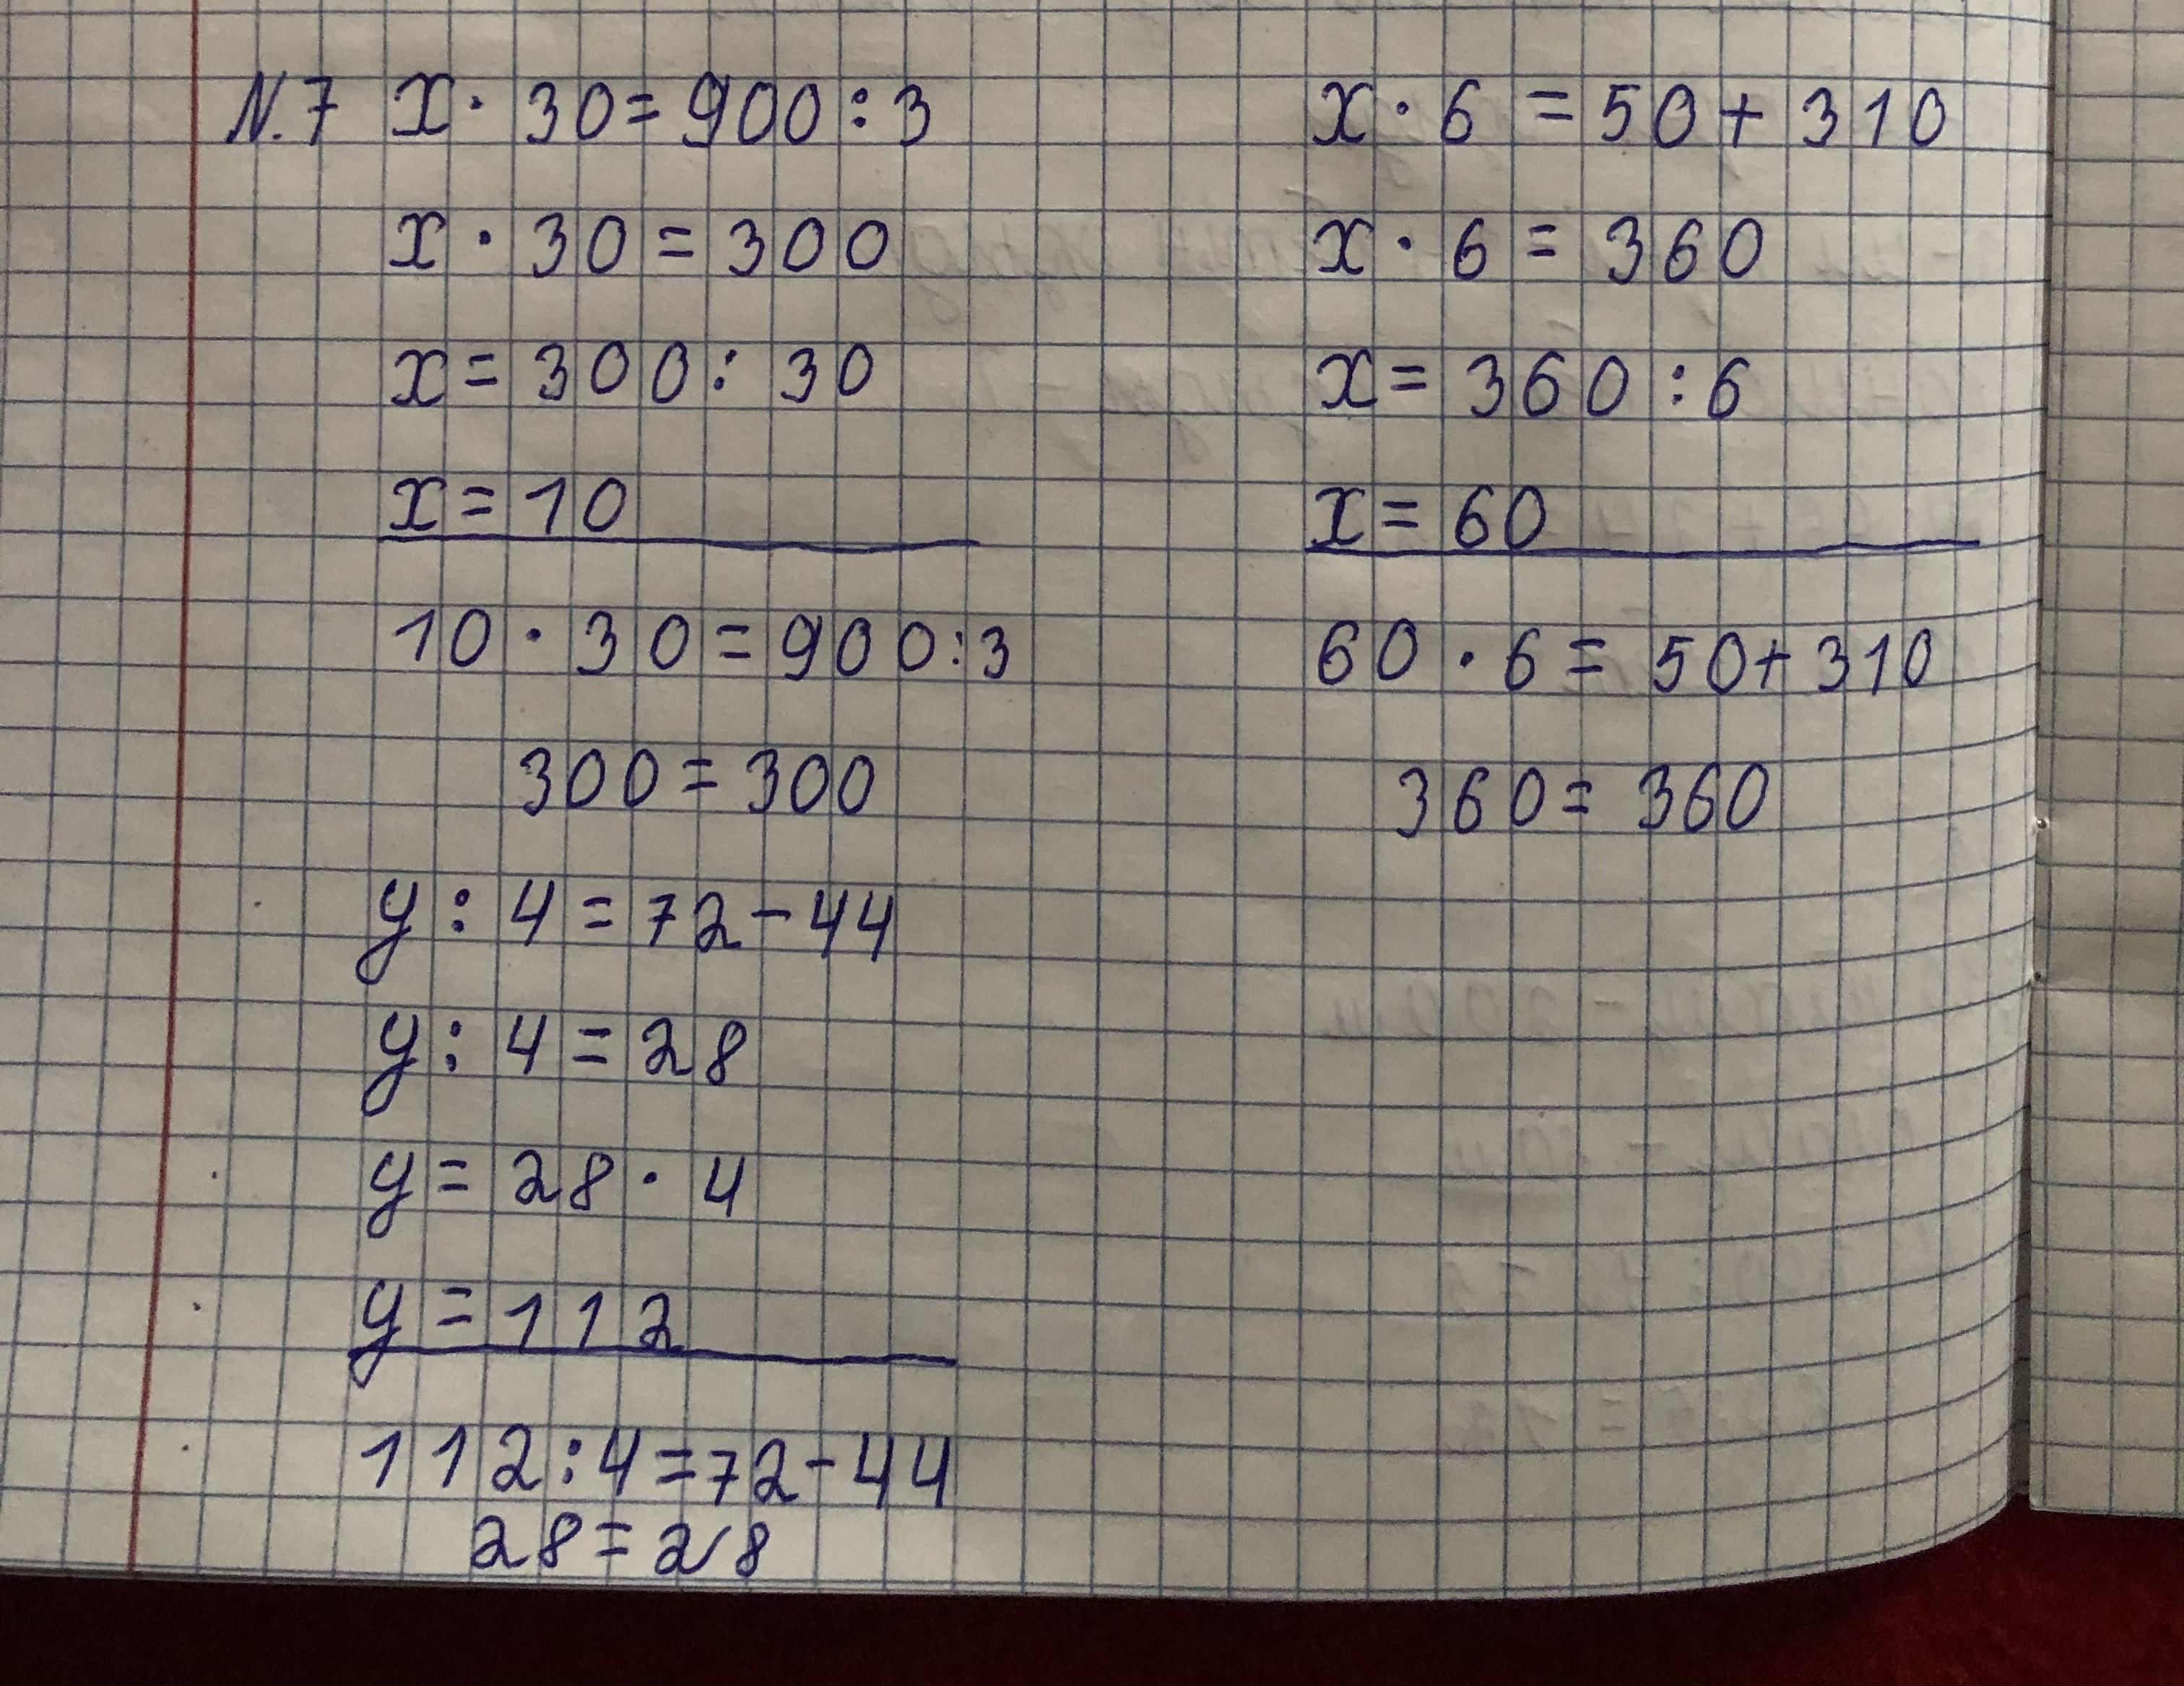 N.7 x · 30 = 900 : 3
x · 30 = 300
x = 300 : 30
x = 10
10 · 30 = 900 : 3
300 = 300
y : 4 = 72 - 44
y : 4 = 28
y = 28 · 4
y = 112
112 : 4 = 72 - 44
28 = 28
x · 6 = 50 + 310
x · 6 = 360
x = 360 : 6
x = 60
60 · 6 = 50 + 310
360 = 360